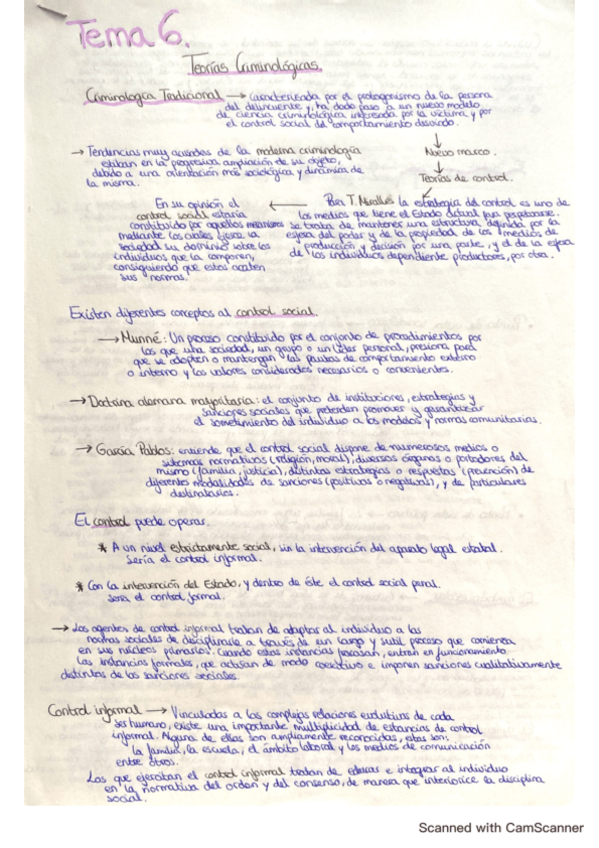 Tema 6.
Teorías Criminológicas.
Criminología Tradicional → caracterizada por el protagonismo de la persona
del delincuente y ha dado paso a un nuevo modelo
de ciencia criminológica interesada por la víctima, y por
el control social del comportamiento desviado.
→ Tendencias muy acusadas de la moderna criminología
estriban en la progresiva ampliación de su objeto,
debido a una orientación más sociológica y dinámica de
la misma.
Nuevo marco.
Teorías de control.
Para T. Miralles la estrategia del control es uno de
los medios que tiene el Estado actual para perpetuarse.
se trata de mantener una estructura definida por la
esfera del poder y de la propiedad de los medios de
producción y decisión por una parte, y el de la esfera
de los individuos dependiente productores, por otra.
En su opinión el
control social estaría
constituido por aquellos mecanismos
mediante los cuales ejerce la
sociedad su dominio sobre los
individuos que la componen,
consiguiendo que estos acaten
sus normas.
Existen diferentes conceptos al control social.
→ Munné: Un proceso constituido por el conjunto de procedimientos por
los que una sociedad, un grupo o un líder personal, presiona para
que se adopten o mantengan las pautas de comportamiento externo
o interno y los valores considerados necesarios o convenientes.
→ Doctrina alemana mayoritaria: el conjunto de instituciones, estrategias y
sanciones sociales que pretenden promover y garantizar
el sometimiento del individuo a los modelos y normas comunitarias.
→ García Pablos: entiende que el control social dispone de numerosos medios o
sistemas normativos (religión, moral), diversos órganos o portadores del
mismo (familia, justicia), distintas estrategias o respuestas (prevención) de
diferentes modalidades de sanciones (positivas o negativas), y de particulares
destinatarios.
El control puede operar.
* A un nivel estrictamente social, sin la intervención del aparato legal estatal.
Sería el control informal.
* Con la intervención del Estado, y dentro de éste el control social penal.
sera el control formal.
→ Los agentes de control informal tratan de adaptar al individuo a las
normas sociales de disciplinarle a través de un largo y sutil proceso que comienza
en sus núcleos primarios. Cuando estas instancias fracasan, entran en funcionamiento
las instancias formales, que actúan de modo coercitivo e imponen sanciones cualitativamente
distintas de las sanciones sociales.
Control informal → Vinculadas a las complejas relaciones evolutivas de cada
ser humano, existe una importante multiplicidad de estancias de control
informal. Alguna de ellas son ampliamente reconocidas, estas son:
la familia, la escuela, el ámbito laboral y los medios de comunicación
entre otros.
Los que ejercitan el control informal tratan de educar e integrar al individuo
en la normativa del orden y del consenso, de manera que interiorice la disciplina
social.
Scanned with CamScanner